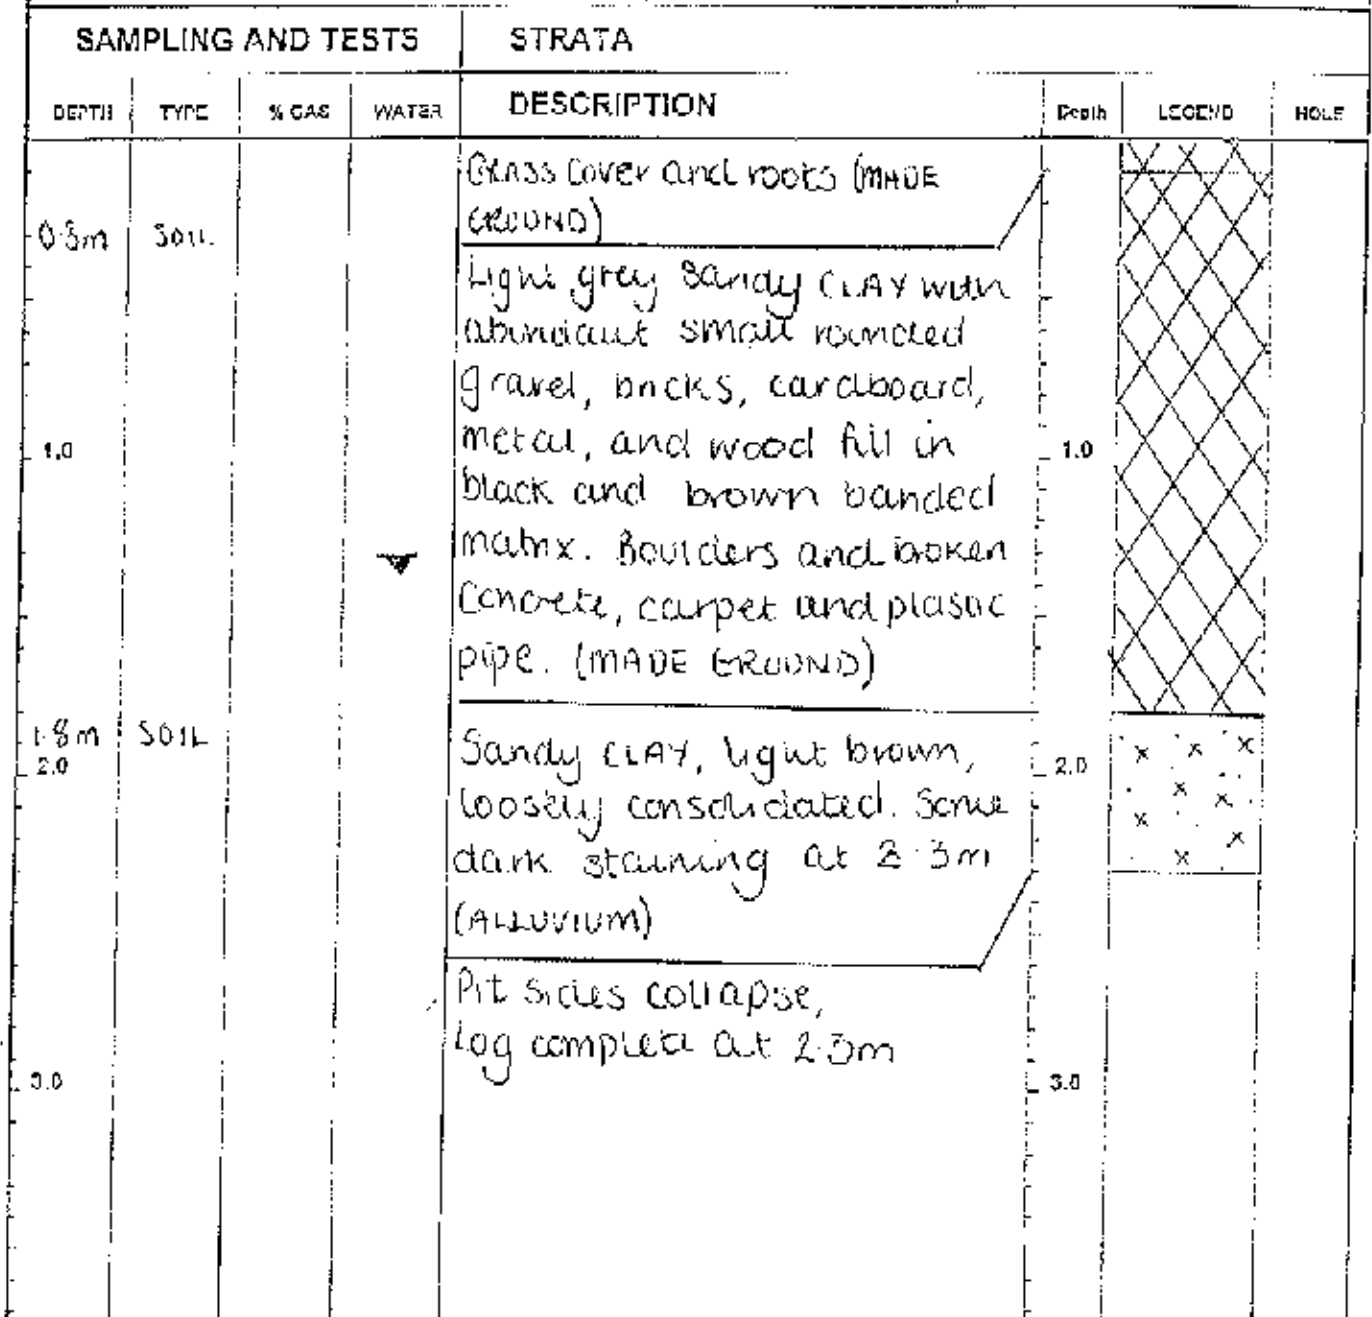 SAMPLING AND TESTS STRATA
DEPTH TYPE % GAS WATER DESCRIPTION Depth LEGEND HOLE
Grass cover and roots (MADE
GROUND)
SOIL
Light grey sandy CLAY with
abundant small rounded
gravel, bricks, cardboard,
metal, and wood fill in
1.0 1.0
black and brown banded
matrix. Boulders and broken
concrete, carpet and plastic
pipe. (MADE GROUND)
1.8m SOIL
Sandy CLAY, light brown,
2.0 2.0
loosely consolidated. Some
dark staining at
(ALLUVIUM)
Pit sides collapse,
Log complete at 2.3m
3.0 3.0